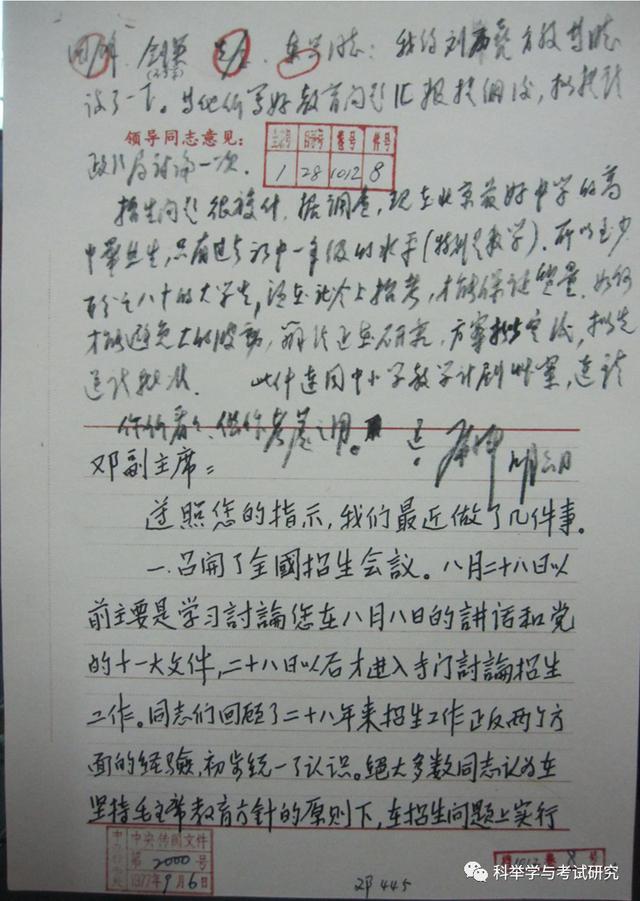 国锋、剑英、先念、东兴同志：我约刘西尧方毅等同志
谈了一下。当他们写好教育问题汇报提纲后，拟提请
领导同志意见：
1 28 1012 8
政治局讨论一次.
招生问题很复杂，据调查，现在北京最好中学的高
中毕业生，只有过去初中一年级的水平(特别是数学)，所以至少
百分之八十的大学生，须在社会上招考，才能保证质量。如何
才能避免大的波动，办法还在研究，方案拟定后，拟先
送请 此件连同中小学教学计划草案，送请
你们看看、供你们考虑之用。
邓副主席：
遵照您的指示，我们最近做了几件事。
一.召開了全國招生会議。八月二十八日以
前主要是学习討論您在八月八日的講话和党
的十一大文件，二十八日以后才进入专门討論招生
工作。同志们回顾了二十八年来招生工作正反两个方
面的经驗，初步统一了认识。絕大多数同志认为在
坚持毛主席教育方針的原则下，在招生问题上实行
中央传阅文件
第2000号
1977年9月6日
1012 8 号
邓445
科举学与考试研究